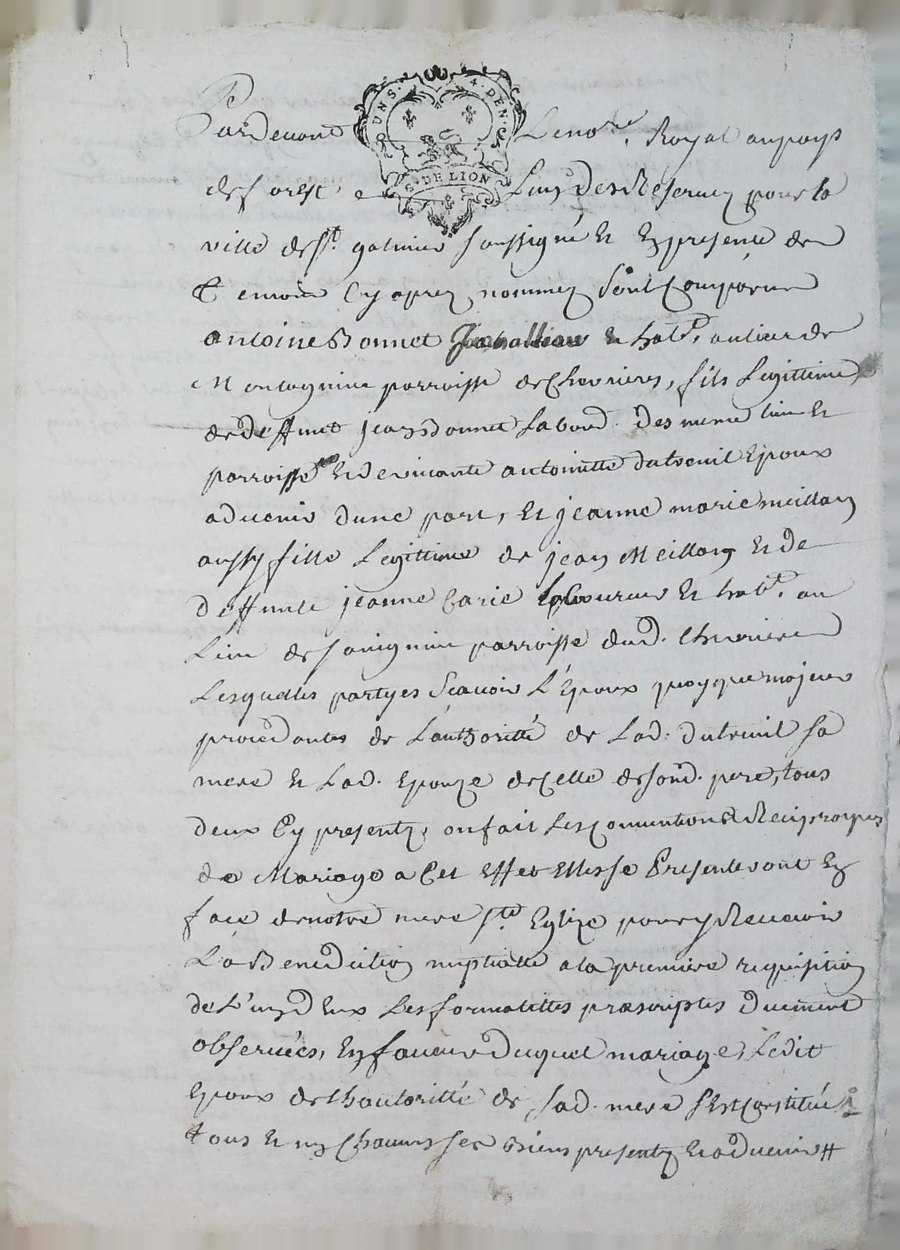 UN S. 4. DEN.
G. DE LION
Pardevant Le no.re Royal au pays
de forest, e Lun Des Reservez pour la
ville de St. galmier soussigné Et En presence des
Temoins Cy aprez nommez sont Comparus
antoine Bonnet et hab.t au lieu de
Montagnieu parroisse de Chevrieres, fils Legittime
de deffunct jean Bonnet Labour. Des meme lieu Et
parroisse Et de vivante antoinette dutreuil Epoux
advenir dune part, Et jeanne marie meillan
aussy fille Legittime de jean Meillan Et de
Deffunte jeanne Carie Et hab.t au
Lieu de parroisse dud. Chevrieres
Lesquelles partyes Scavoir L'Epoux quoyque majeur
procedantes de L'authoritté de Lad. dutreuil sa
mere Et Lad. Epouze de Celle de sond. pere, tous
deux Cy presentz, on fait Les Conventions Reciproques
de Mariage a Cet Effet Elles se Presenteront En
face de notre mere S.te Eglize pour y Recevoir
La Benediction nuptialle a la premiere requisition
de L'un d'Eux Les formalittés prescriptes Duement
observées, En faveur Duquel mariage, Ledit
Epoux de Lhautoritté de sad. mere s'Est Constitué
tous Et un Chacuns ses Biens presentz Et advenir #